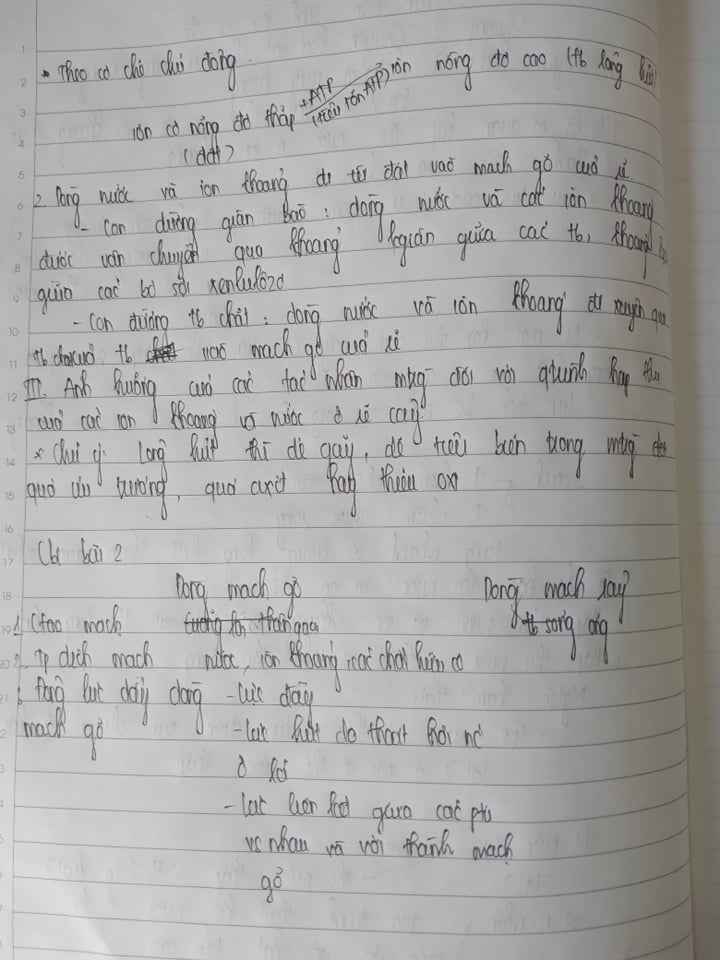 * Theo cơ chế chủ động
ion có nồng độ thấp +ATP (tiêu tốn ATP) ion nồng độ cao (tb lông hút)
(đất)
2. Dòng nước và ion khoáng đi từ đất vào mạch gỗ của rễ
- Con đường gian bào: dòng nước và các ion khoáng
được vận chuyển qua khoảng kgian giữa các tb, khoảng
giữa các bó sợi xenlulôzơ
- Con đường tb chất: dòng nước và ion khoáng đi xuyên qua
tb vào mạch gỗ của rễ
III. Ảnh hưởng của các tác nhân mtrg đối với quá trình hấp thu
của các ion khoáng và nước ở rễ cây
* Chú ý: Lông hút thì dễ gãy, dễ tiêu biến trong mtrg
quá ưu trương, quá axit hay thiếu oxi
bài 2
Dòng mạch gỗ Dòng mạch rây
1. Ctạo mạch tb sống ống
2. Tp dịch mạch nước, ion khoáng, các chất hữu cơ
Động lực đẩy dòng - Lực đẩy
mạch gỗ - Lực hút do thoát hơi nc
ở lá
- Lực liên kết giữa các ptử
vs nhau và với thành mạch
gỗ